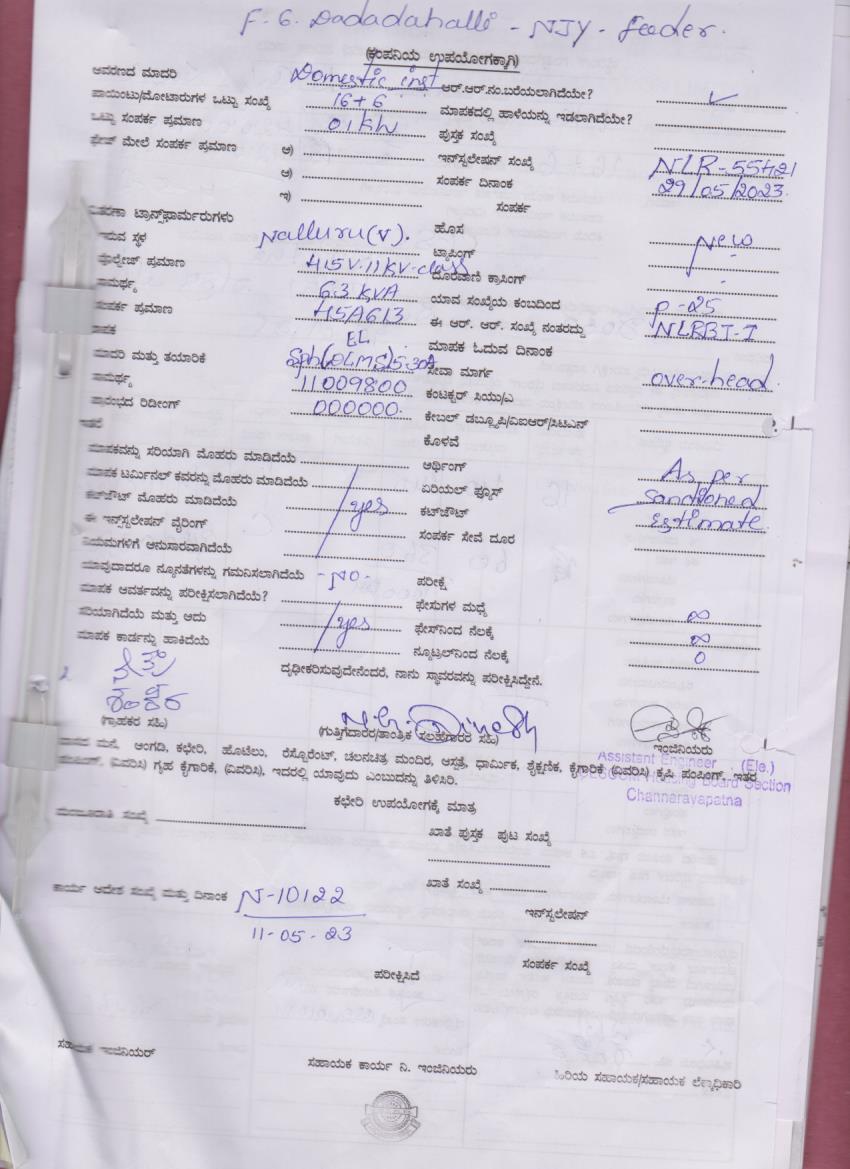 F. G. Dadadahalli - NJY - feeder.
(ಕಂಪನಿಯ ಉಪಯೋಗಕ್ಕಾಗಿ)
ಆವರಣದ ಮಾದರಿ Domestic inst ಆರ್.ಆರ್.ನಂ.ಬರೆಯಲಾಗಿದೆಯೇ? ✓
ಪಾಯಿಂಟು/ಮೋಟಾರುಗಳ ಒಟ್ಟು ಸಂಖ್ಯೆ 16+6 ಮಾಪಕದಲ್ಲಿ ಹಾಳೆಯನ್ನು ಇಡಲಾಗಿದೆಯೇ?
ಒಟ್ಟು ಸಂಪರ್ಕ ಪ್ರಮಾಣ 01 KW ಪುಸ್ತಕ ಸಂಖ್ಯೆ
ಫೇಜ್ ಮೇಲೆ ಸಂಪರ್ಕ ಪ್ರಮಾಣ ಅ) ಇನ್‌ಸ್ಟಲೇಷನ್ ಸಂಖ್ಯೆ NLR-55421
ಆ) ಸಂಪರ್ಕ ದಿನಾಂಕ 29/05/2023.
ಇ) ಸಂಪರ್ಕ
ವಿತರಣಾ ಟ್ರಾನ್ಸ್‌ಫಾರ್ಮರುಗಳು ಹೊಸ New
ಇರುವ ಸ್ಥಳ Nalluru(V). ಟ್ಯಾಪಿಂಗ್
ವೋಲ್ಟೇಜ್ ಪ್ರಮಾಣ 415V-11KV-class ದೂರವಾಣಿ ಕ್ರಾಸಿಂಗ್
ಸಾಮರ್ಥ್ಯ 63 KVA ಯಾವ ಸಂಖ್ಯೆಯ ಕಂಬದಿಂದ P-25
ಸಂಪರ್ಕ ಪ್ರಮಾಣ ಈ ಆರ್. ಆರ್. ಸಂಖ್ಯೆ ನಂತರದ್ದು
ಮಾಪಕ EL ಮಾಪಕ ಓದುವ ದಿನಾಂಕ
ಮಾದರಿ ಮತ್ತು ತಯಾರಿಕೆ ಸೇವಾ ಮಾರ್ಗ over-head.
ಸಾಮರ್ಥ್ಯ 11009800 ಕಂಟಕ್ಟರ್ ಸಿಯು/ಎ
ಪ್ರಾರಂಭದ ರಿಡೀಂಗ್ 000000. ಕೇಬಲ್ ಡಬ್ಲ್ಯೂಪಿ/ಎಐಆರ್/ಸಿಟಿಎನ್
ಇತರೆ ಕೊಳವೆ
ಮಾಪಕವನ್ನು ಸರಿಯಾಗಿ ಮೊಹರು ಮಾಡಿದೆಯೆ ಅರ್ಥಿಂಗ್ As per
ಮಾಪಕ ಟರ್ಮಿನಲ್ ಕವರನ್ನು ಮೊಹರು ಮಾಡಿದೆಯೆ ಏರಿಯಲ್ ಫ್ಯೂಸ್ sanctioned
ಕಟ್‌ಔಟ್ ಮೊಹರು ಮಾಡಿದೆಯೆ yes ಕಟ್‌ಔಟ್ Estimate.
ಈ ಇನ್‌ಸ್ಟಲೇಷನ್ ವೈರಿಂಗ್ ಸಂಪರ್ಕ ಸೇವೆ ದೂರ
ನಿಯಮಗಳಿಗೆ ಅನುಸಾರವಾಗಿದೆಯೆ
ಯಾವುದಾದರೂ ನ್ಯೂನತೆಗಳನ್ನು ಗಮನಿಸಲಾಗಿದೆಯೆ - No - ಪರೀಕ್ಷೆ
ಮಾಪಕ ಆವರ್ತವನ್ನು ಪರೀಕ್ಷಿಸಲಾಗಿದೆಯೆ? ಫೇಸುಗಳ ಮಧ್ಯೆ ∞
ಸರಿಯಾಗಿದೆಯೆ ಮತ್ತು ಅದು yes ಫೇಸ್‌ನಿಂದ ನೆಲಕ್ಕೆ ∞
ಮಾಪಕ ಕಾರ್ಡನ್ನು ಹಾಕಿದೆಯೆ ನ್ಯೂಟ್ರಲ್‌ನಿಂದ ನೆಲಕ್ಕೆ 0
ದೃಢೀಕರಿಸುವುದೇನೆಂದರೆ, ನಾನು ಸ್ಥಾವರವನ್ನು ಪರೀಕ್ಷಿಸಿದ್ದೇನೆ.
(ಗ್ರಾಹಕರ ಸಹಿ) (ಗುತ್ತಿಗೆದಾರರ/ತಾಂತ್ರಿಕ ಸಲಹೆಗಾರರ ಸಹಿ) ಇಂಜಿನಿಯರು
Assistant Engineer (Ele.)
ಮನೆ, ಅಂಗಡಿ, ಕಛೇರಿ, ಹೊಟೆಲು, ರೆಸ್ಟೊರೆಂಟ್, ಚಲನಚಿತ್ರ ಮಂದಿರ, ಆಸ್ಪತ್ರೆ, ಧಾರ್ಮಿಕ, ಶೈಕ್ಷಣಿಕ, ಕೈಗಾರಿಕೆ (ವಿವರಿಸಿ) ಕೃಷಿ ಪಂಪಿಂಗ್, ಇತರ
(ವಿವರಿಸಿ) ಗೃಹ ಕೈಗಾರಿಕೆ, (ವಿವರಿಸಿ), ಇದರಲ್ಲಿ ಯಾವುದು ಎಂಬುದನ್ನು ತಿಳಿಸಿರಿ.
Board Section
Channarayapatna
ಕಛೇರಿ ಉಪಯೋಗಕ್ಕೆ ಮಾತ್ರ
ಮಂಜೂರಾತಿ ಸಂಖ್ಯೆ ಖಾತೆ ಪುಸ್ತಕ ಪುಟ ಸಂಖ್ಯೆ
ಖಾತೆ ಸಂಖ್ಯೆ
ಕಾರ್ಯ ಆದೇಶ ಸಂಖ್ಯೆ ಮತ್ತು ದಿನಾಂಕ N-10122
11-05-23
ಇನ್‌ಸ್ಟಲೇಷನ್
ಸಂಪರ್ಕ ಸಂಖ್ಯೆ
ಪರೀಕ್ಷಿಸಿದೆ
ಸಹಾಯಕ ಇಂಜಿನಿಯರ್ ಸಹಾಯಕ ಕಾರ್ಯ ನಿ. ಇಂಜಿನಿಯರು ಹಿರಿಯ ಸಹಾಯಕ/ಸಹಾಯಕ ಲೆಕ್ಕಾಧಿಕಾರಿ